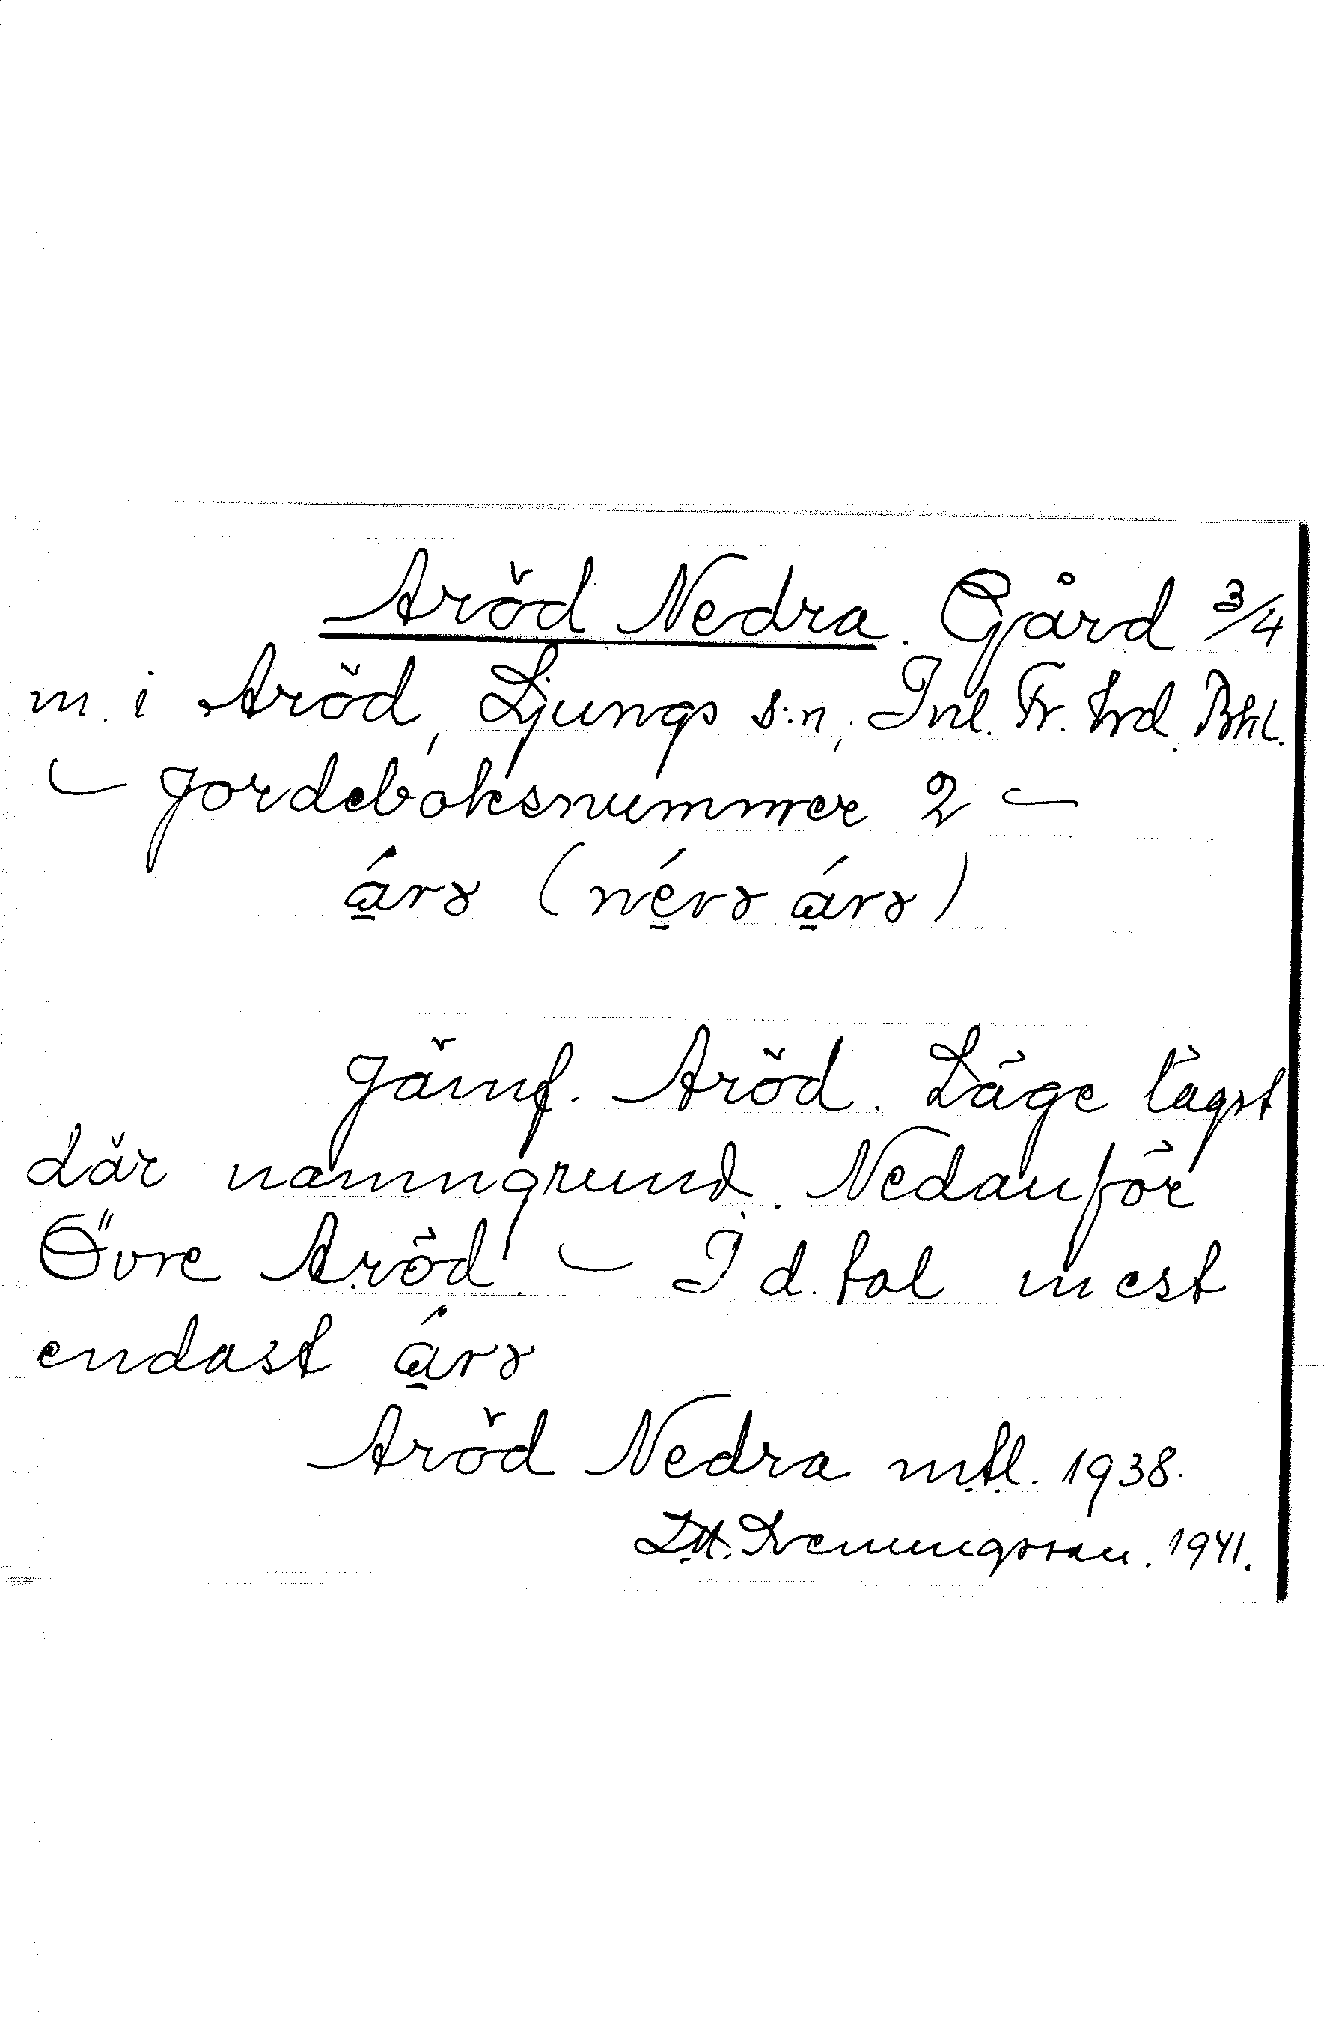 Aröd Nedra. Gård 3/4
m. i Aröd, Ljungs s:n, Inl. Fr. hrd, Bhl.
– Jordeboksnummer 2 –
á̱rɤ (né̱vrɤ á̱rɤ)
Jämf. Aröd. Läge lägst
där namngrund. Nedanför
Övre Aröd. – I d. tal mest
endast á̱rɤ
Aröd Nedra mtl. 1938.
1941.